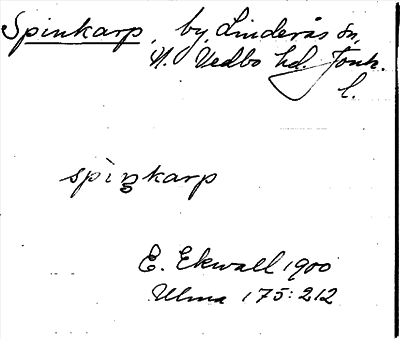 Spinkarp, by, Linderås sn,
N. Vedbo hd. Jönk.
l.
spìŋkarp
E. Ekwall 1900
Ulma 175:212